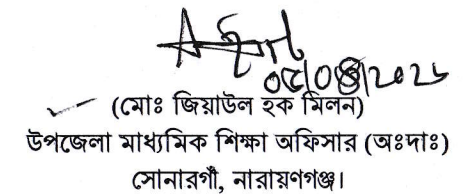 (মোঃ জিয়াউল হক মিলন)
উপজেলা মাধ্যমিক শিক্ষা অফিসার (অঃদাঃ)
সোনারগাঁ, নারায়ণগঞ্জ।